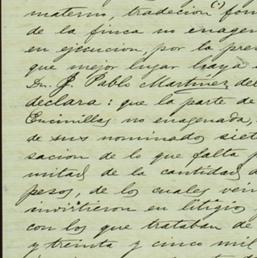 materno, tradición(') for
de la finca no enagen
en ejecucion, por la pre
que mejor lugar haya
Dn. J. Pablo Martinez del
declara: que la parte de
Encinillas no enagenada,
de sus nominado siet
sacion de lo que falta p
mitad de la cantidad d
pesos, de los cuales vein
invirtieron en litigio
con los que trataban de
y treinta y cinco mil